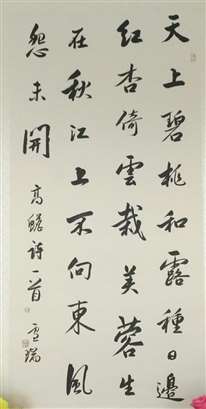 天上碧桃和露種日邊
紅杏倚雲栽芙蓉生
在秋江上不向東風
怨未開
高蟾詩一首